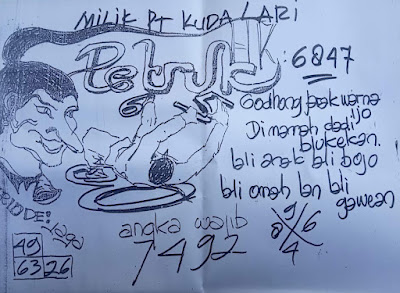 MILIK PT KUDA LARI
Petruk HK : 6847
Godhong pak warna
ijo
Di manah dadi
blukekan.
bli anak bli bojo
bli omah lan bli
gawean
angka wajib
7492
9
8 6
4
49
63 26